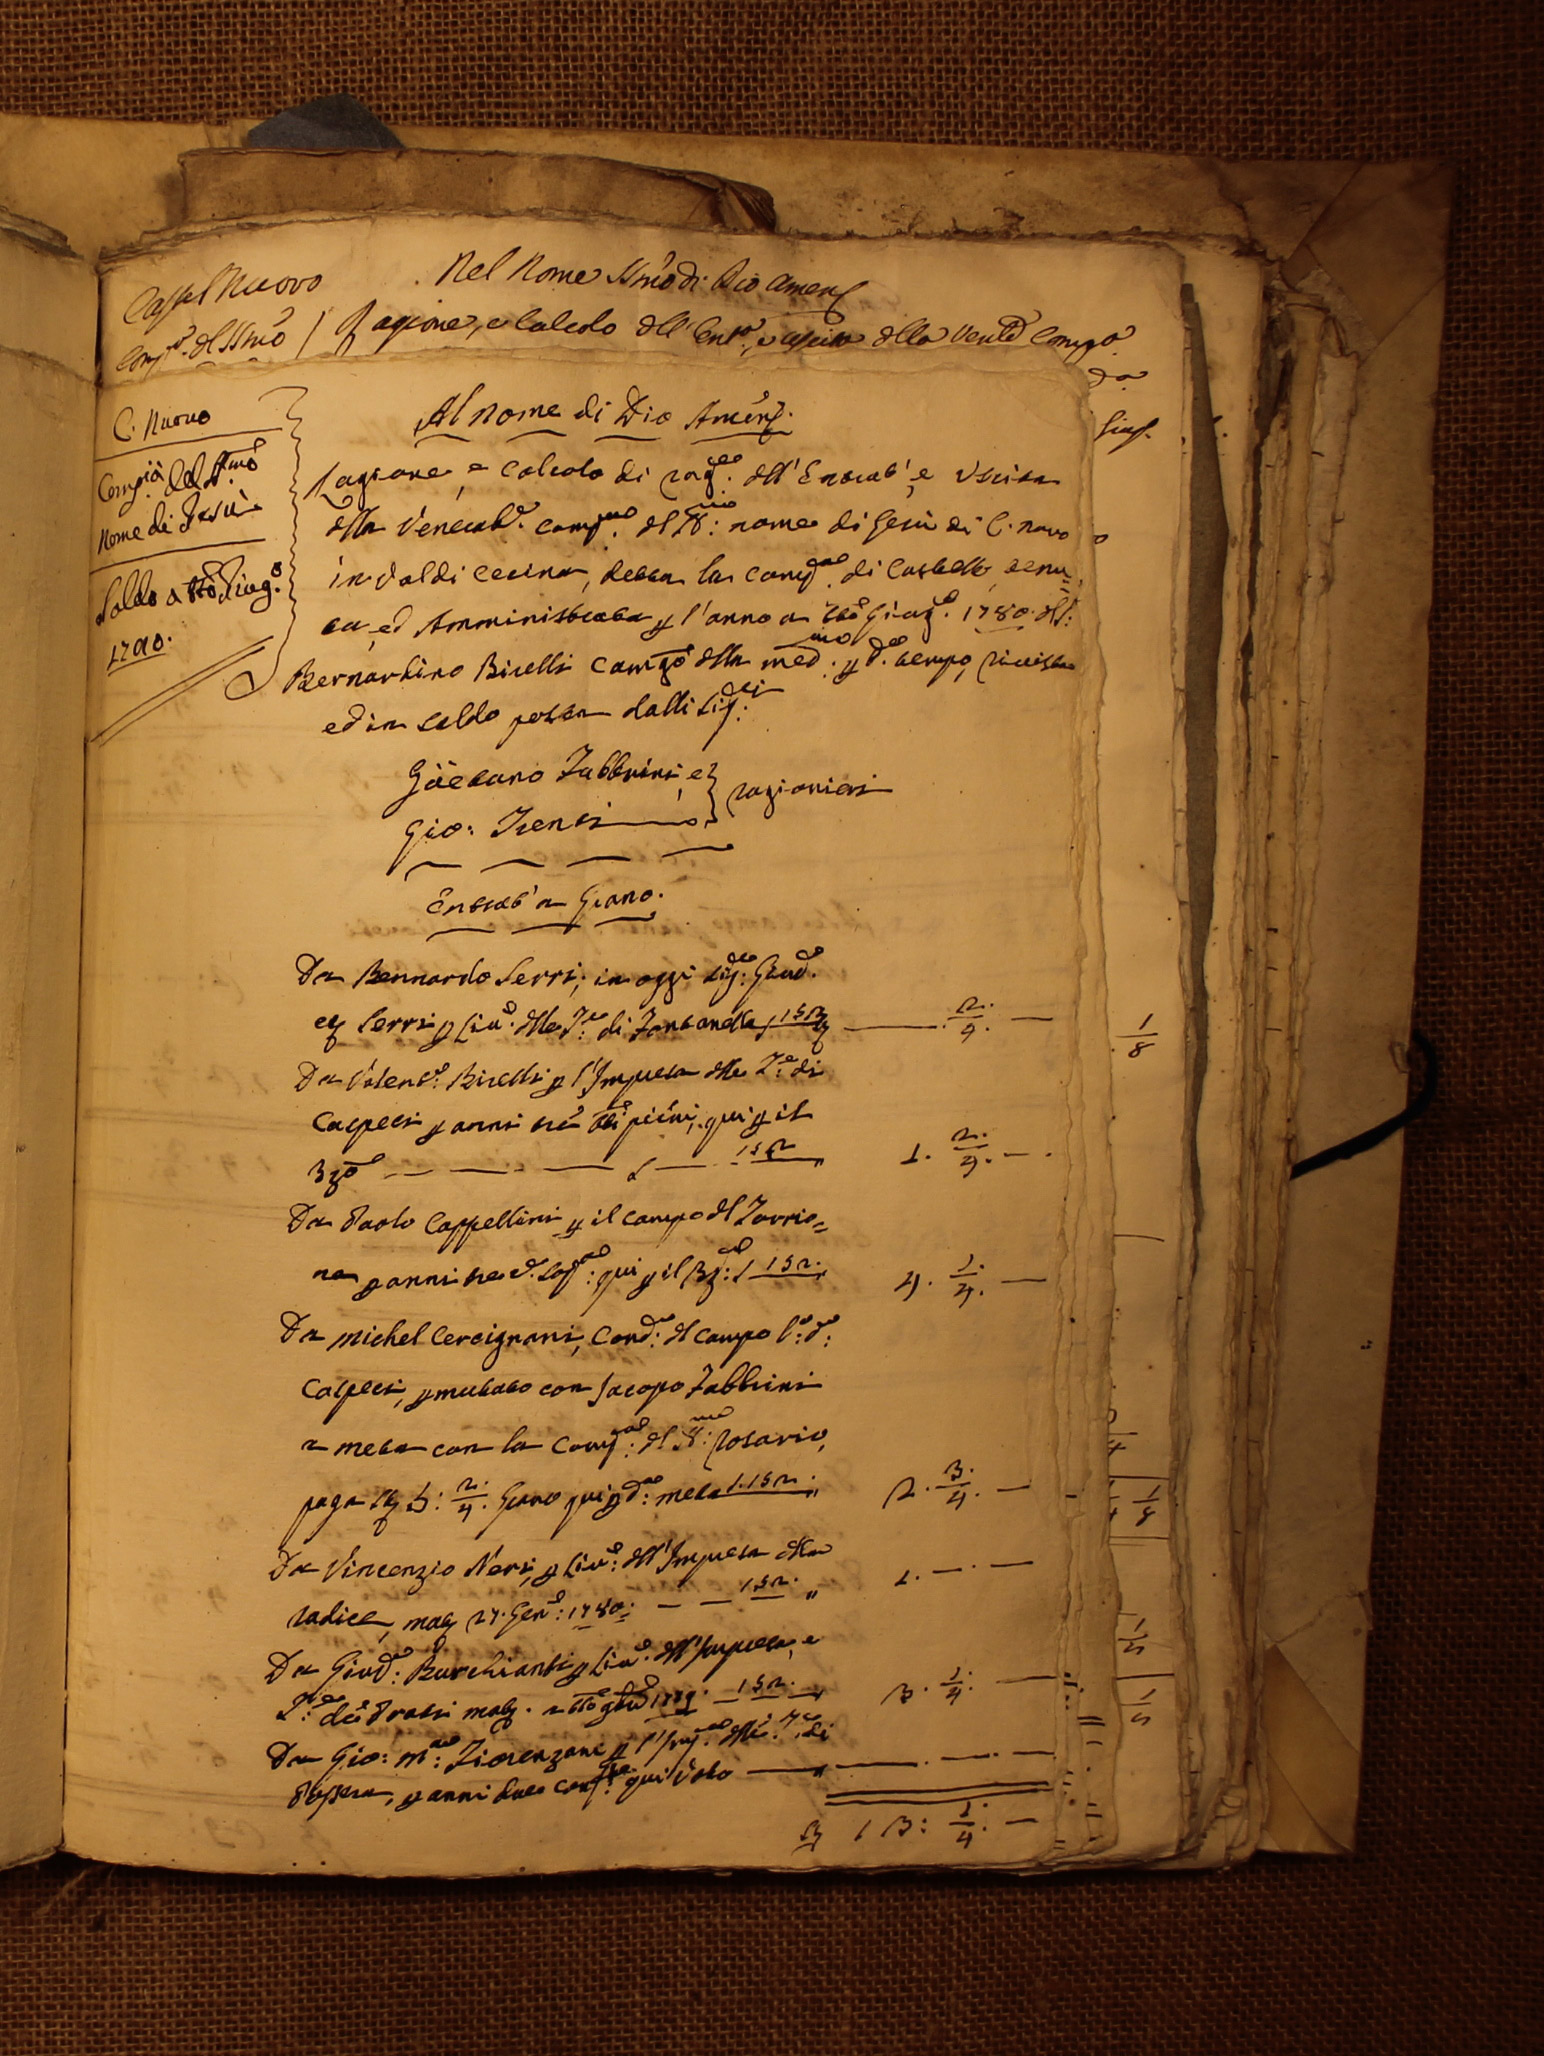 Castel Nuovo
Nel Nome SS.mo di Dio Amen
Comp.a del SS.mo
Ragione, e Calcolo dell' Ent.a, e uscita della Ven.le Comp.a
da
Giug.
C. Nuovo
Comp.ia del SS.mo
Nome di Gesù
Saldo a tt.o Giug.o
1780.
Al nome di Dio Amen.
Ragione, e Calcolo di rag.ne dell'Entrat', e Uscita
della Venerab.e Comp.nia del SS.mo: nome di Gesù di C. novo
in Val di Cecina, detta la Comp.nia di Castello, tenu=
ta, ed Amministrata p l'anno a tt.o Giug.o 1780. dl S:
Bernardino Bicelli Cam.go della med.ma p d.o tempo, rivista
ed in saldo posta dalli Sig.ri
Gaetano Fabbrini, e
Gio: Trenti
ragionieri
Entrat'a Grano.
Da Bernardo Serri, in oggi Sig.re Giud.e
Serri p Liv.o delle T.e di Fontanella, 152 2/4. —
1/8
Da Valent.o Bicelli p l'Impresa delle T.e di
Caspeci p anni tre tt.i p.mi, qui p il
3zo — — — 152 1. 2/4. —
Da Paolo Cappellini p il campo dl Torrio=
ne p anni tre c.e sop.a: qui p il 3.o: 152. 4. 1/4. —
Da Michel Cercignani, Cond.e dl campo l.o d.o:
Caspeci, pmutato con Jacopo Fabbrini
a meta con la Comp.nia: dl SS.mo: Rosario,
paga 5: 2/4. Grano qui p d.a: meta 152. 2. 3/4. —
1/8
Da Vincenzio Neri, p Liv.o: dell'Impresa della
radice, mag 27. Gen.o: 1780: — — 152. 1. — . —
1/2
Da Giud.o: Burchianti p Liv.o dell'Impresa, e
T.e: dei Prati mat. a tt.o 9bre 1779. — 152. — 3. 1/4. —
Da Gio: M.a: Fiorenzani p l'Imp.a delle T.e di
Possera, p anni due qui Voto — — . — . —
13: 1/4. —